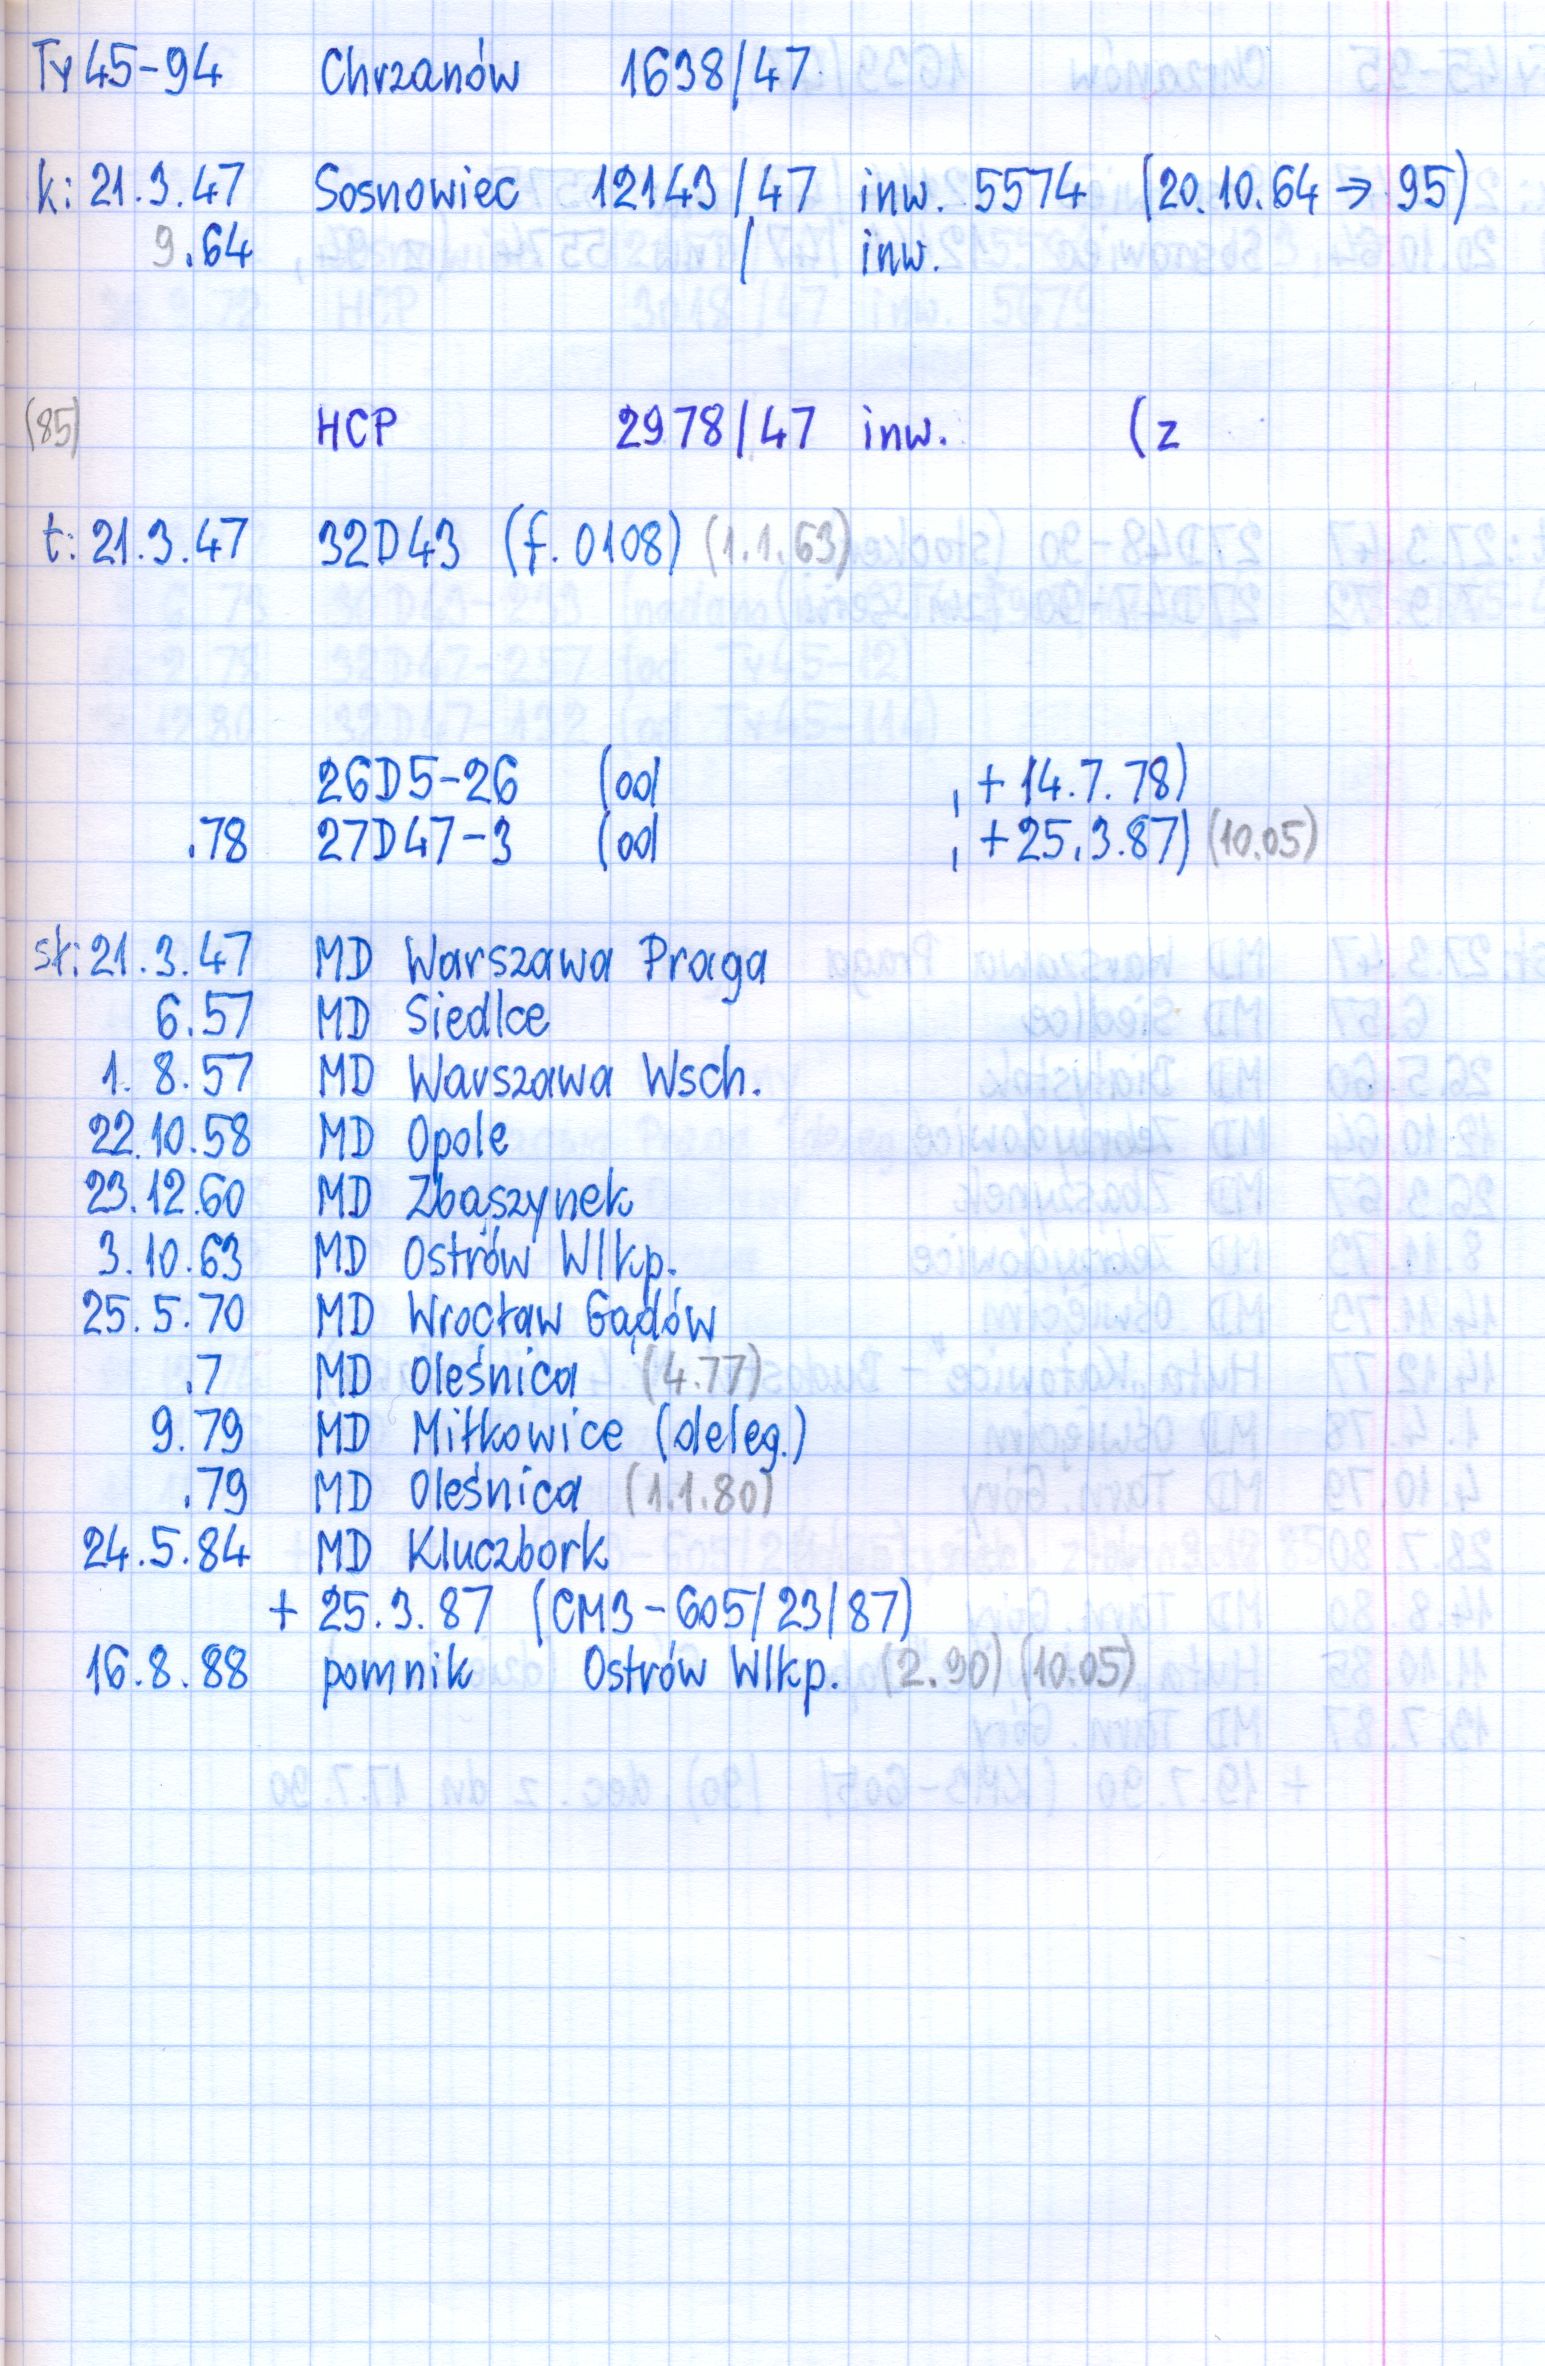 Ty45-94 Chrzanów 1638/47
k: 21.3.47 Sosnowiec 12143/47 inw. 5574 (20.10.64 → 95)
9.64 / inw.
(85) HCP 2978/47 inw. (z
t: 21.3.47 32D43 (f. 0108) (1.1.63)
26D5-26 (od , + 14.7.78)
.78 27D47-3 (od , + 25.3.87) (10.05)
st: 21.3.47 MD Warszawa Praga
6.57 MD Siedlce
1. 8.57 MD Warszawa Wsch.
22.10.58 MD Opole
23.12.60 MD Zbąszynek
3.10.63 MD Ostrów Wlkp.
25.5.70 MD Wrocław Gądów
.7 MD Oleśnica (4.77)
9.79 MD Miłkowice (deleg.)
.79 MD Oleśnica (1.1.80)
24.5.84 MD Kluczbork
+ 25.3.87 (CM3-605/23/87)
16.8.88 pomnik Ostrów Wlkp. (2.90) (10.05)